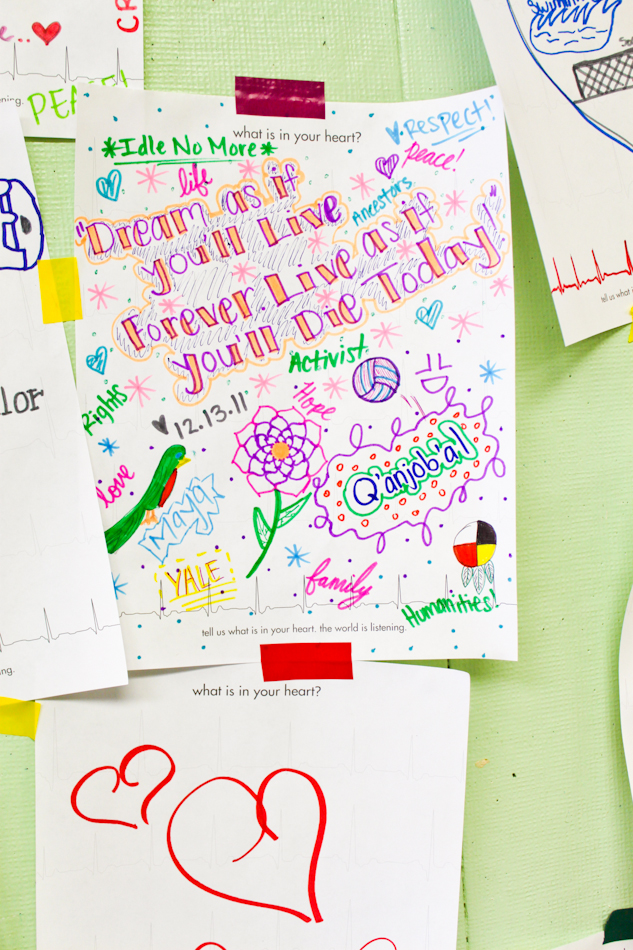 PEACE!
what is in your heart?
*Idle No More*
Respect!
Peace!
life
Ancestors
"Dream as if
you'll Live
Forever. Live as if
you'll Die Today!"
Activist
Rights
Hope
12.13.11
love
Maya
Q'anjob'al
YALE
family
Humanities!
tell us what is in your heart. the world is listening.
what is in your heart?